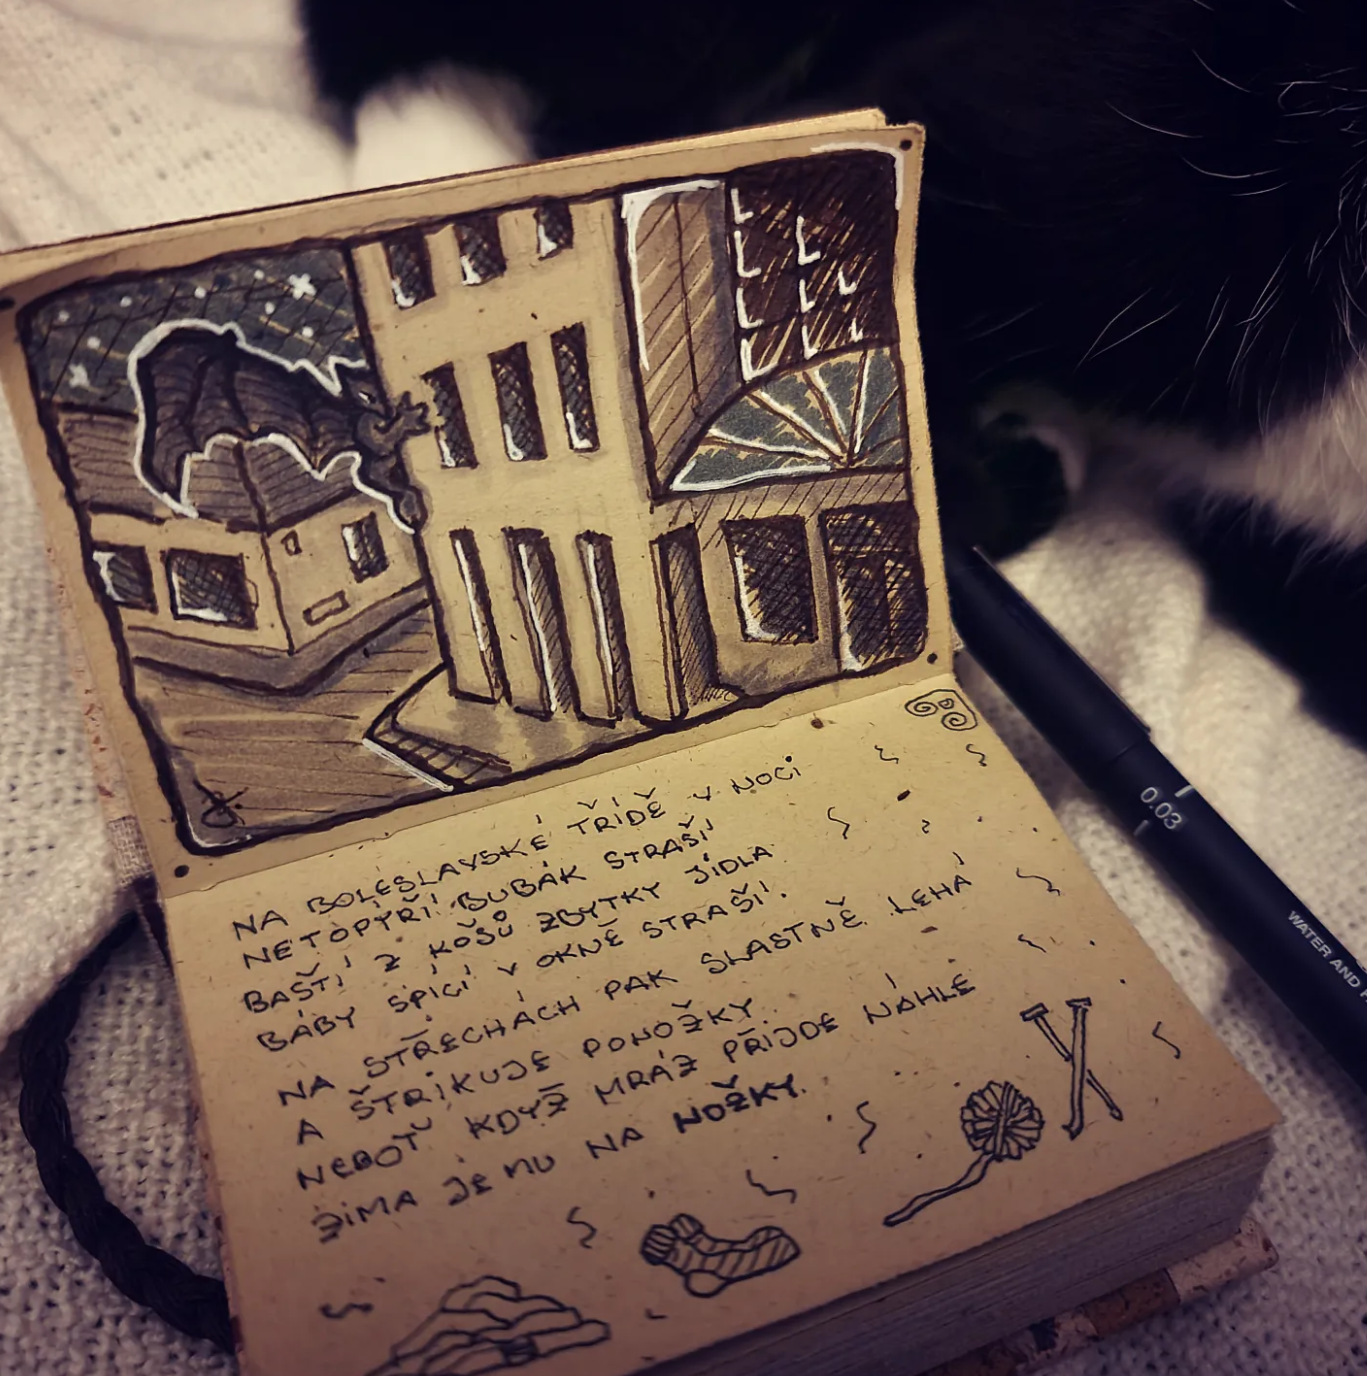 NA BOLESLAVSKÉ TŘÍDĚ V NOCI
NETOPÝŘÍ BUBÁK STRAŠÍ
BAŠTÍ Z KOŠŮ ZBYTKY JÍDLA
BÁBY SPÍCÍ V OKNĚ STRAŠÍ.
NA STŘECHÁCH PAK SLASTNĚ LEHÁ
A ŠTRIKUJE PONOŽKY
NEBOŤ KDYŽ MRÁZ PŘIJDE NÁHLE
ZIMA JE MU NA NOŽKY.
0.03
WATER AND